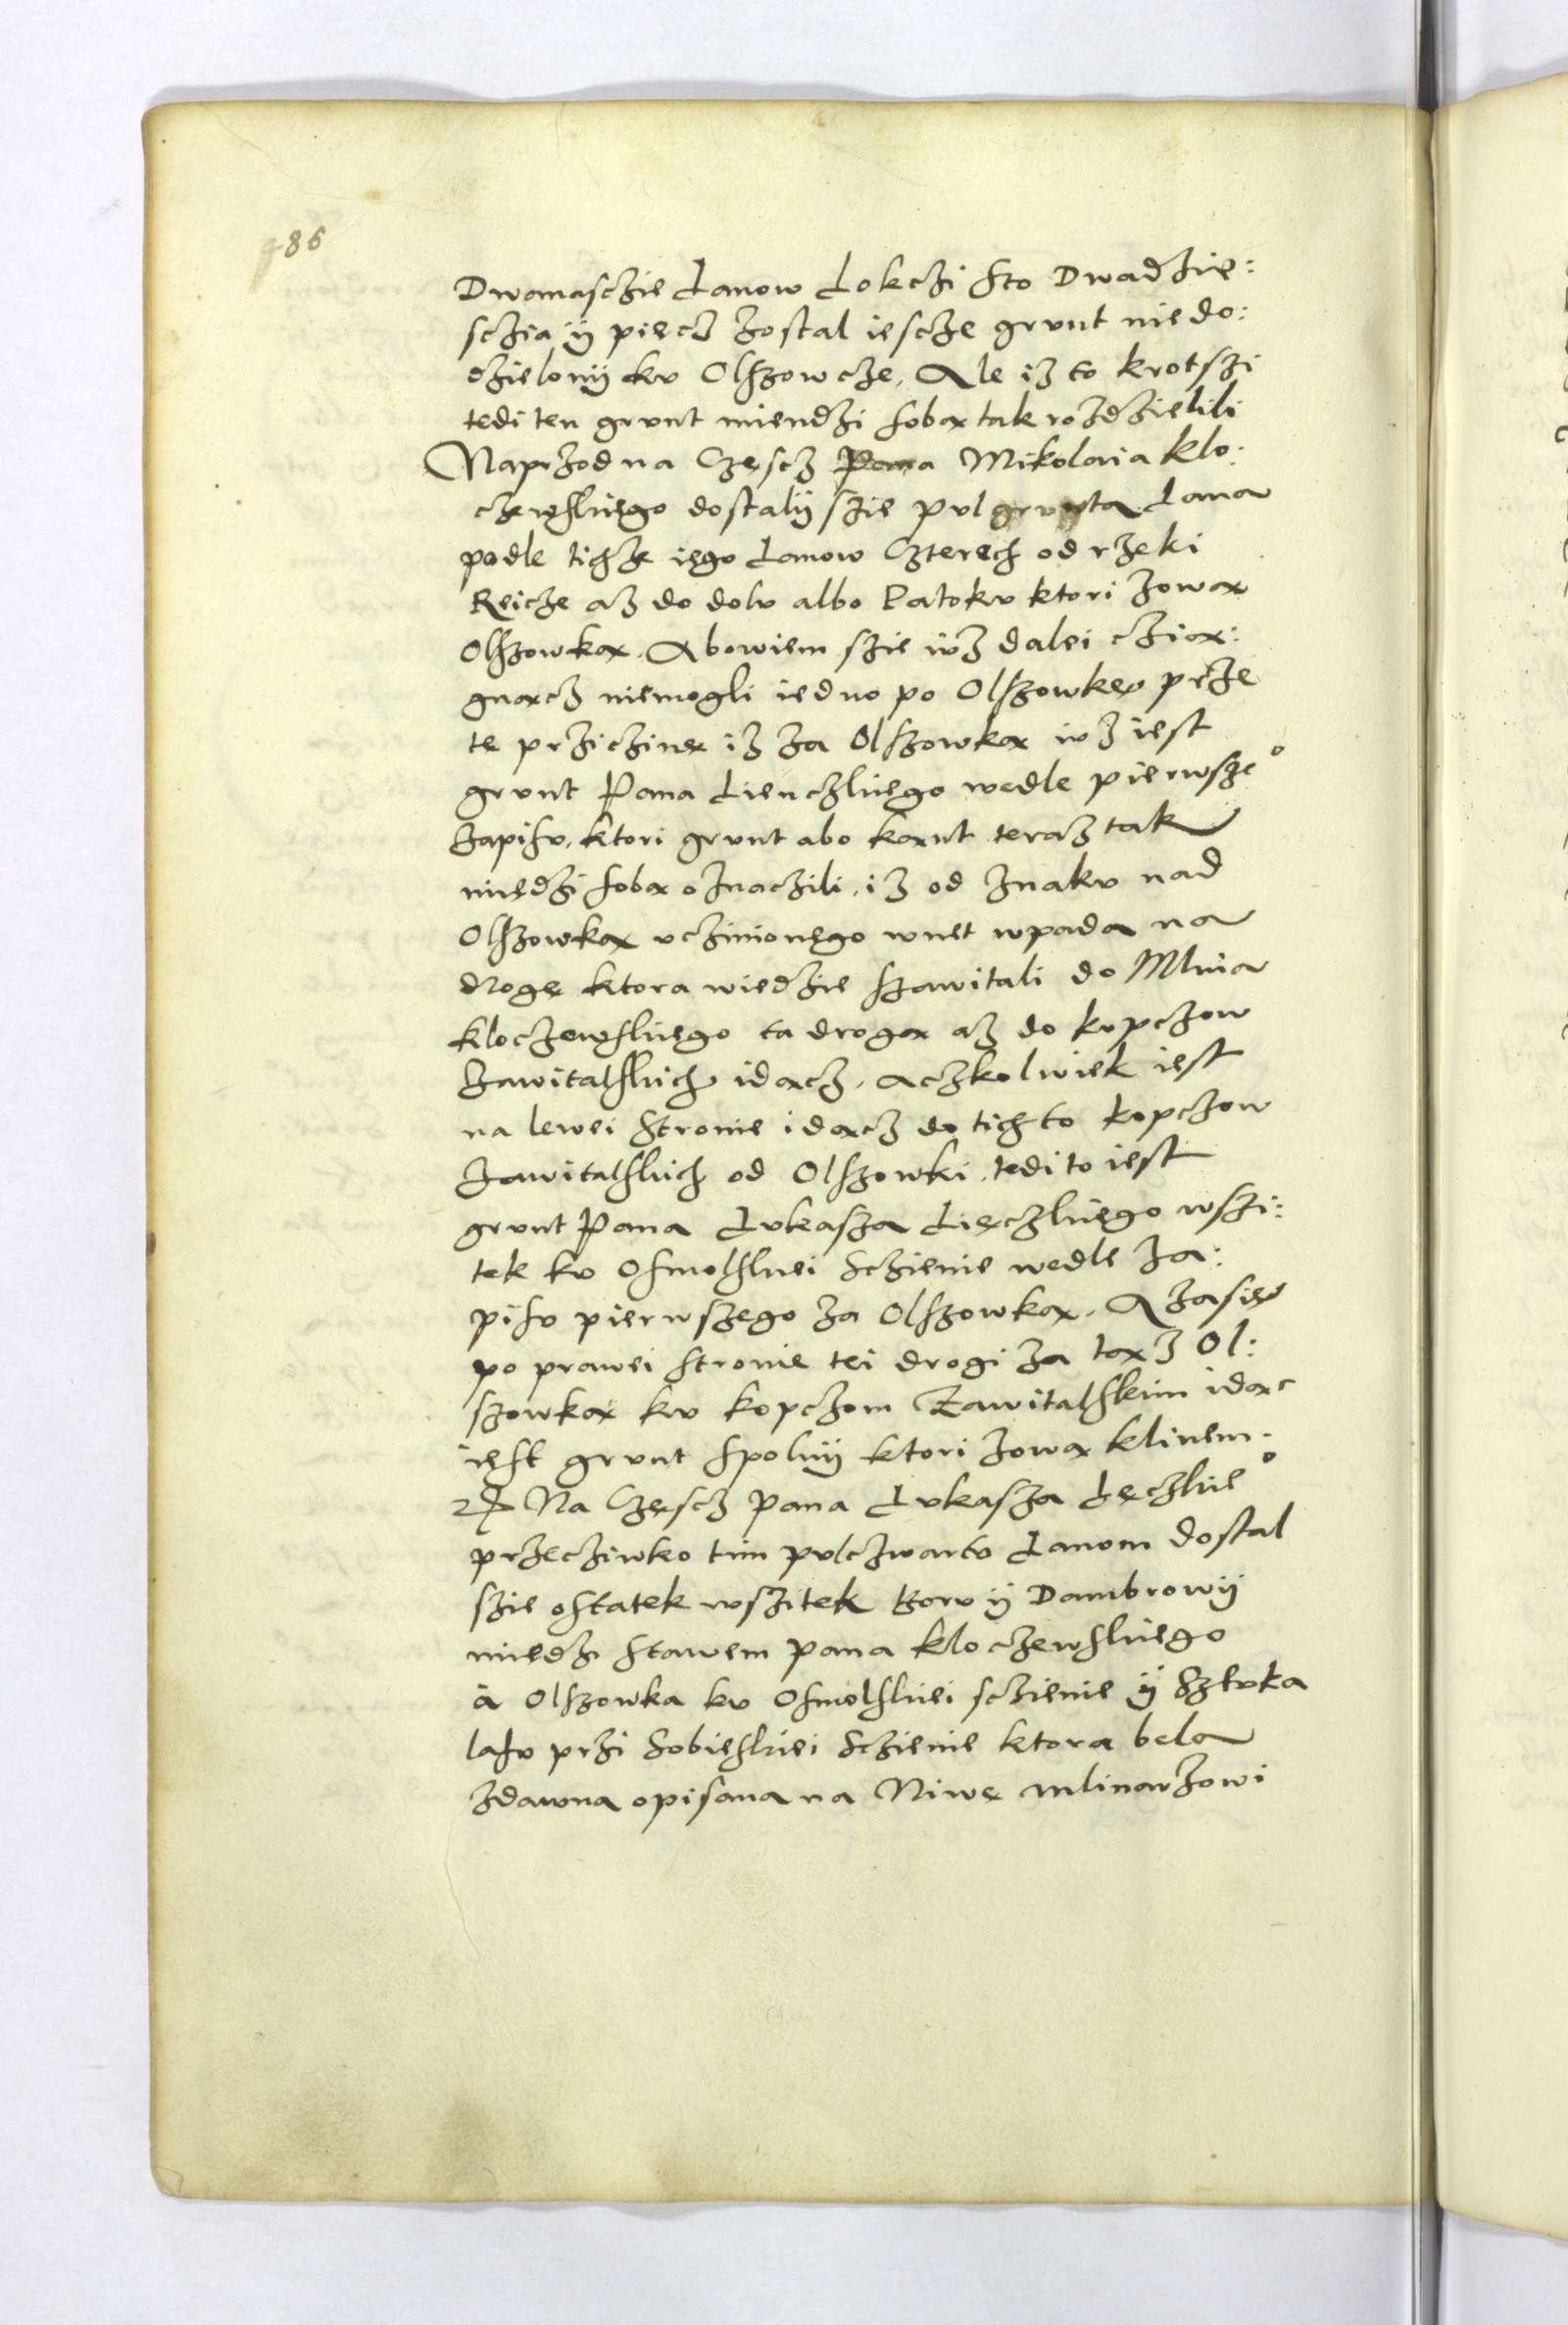 486
Dwanasczie Lanow Lokczi sto Dwadzie:
sczia ÿ piecz zostal iescze grvnt niedo:
dzielonÿ kv Olszowcze, Ale iz to krotszi
tedi ten grvnt miendzi sobą tak rozdzielili
Naprzod na Częscz Pana Mikolaia Klo:
czewskiego dostalÿ szie pvl grvnta Lana
podle tichze iego Lanow Czterech od rzeki
Reicze az do dolv albo Patokv ktori zową
Olszowką. Abowiem szie ivz dalei czią:
gnącz niemogli iedno po Olszowkę prze
te prziczinę iz za Olszowką ivz iest
grvnt Pana Lienczkiego wedle pierwsze°
Zapisv, ktori grvnt abo kąnt teraz tak
miedzi sobą oznaczili, iz od znakv nad
Olszowką vczinionego wnet wpada na
drogę ktora wiedzie szawitali do Mlina
Kloczewskiego ta drogą az do kopczow
Zawitalskich idącz, aczkolwiek iest
na lewei stronie idącz do tichto kopczow
Zawitalskich od Olszowki, tedi to iest
grvnt Pana Lvkasza Lięczkiego wszi:
tek kv Osmolskiei Sczienie wedle Za:
pisv pierwszego za Olszowką. A zasię
po prawei stronie tei drogi za tąz Ol:
szowką kv kopczom Zawitalskim idąc
iest grvnt spolnÿ ktori zową klinem.
Na Częscz pana Lvkasza Lęczkie°
przecziwko tim pvlczwartv Lanom dostal
szie ostatek wszitek Borv ÿ Dambrowÿ
miedzi stawem pana Kloczewskiego
à Olszowka kv Osmolskiei sczienie ÿ Sztvka
lasv przi Sobieskiei Sczienie ktora bela
zdawna opisana na Niwę mlinarzowi